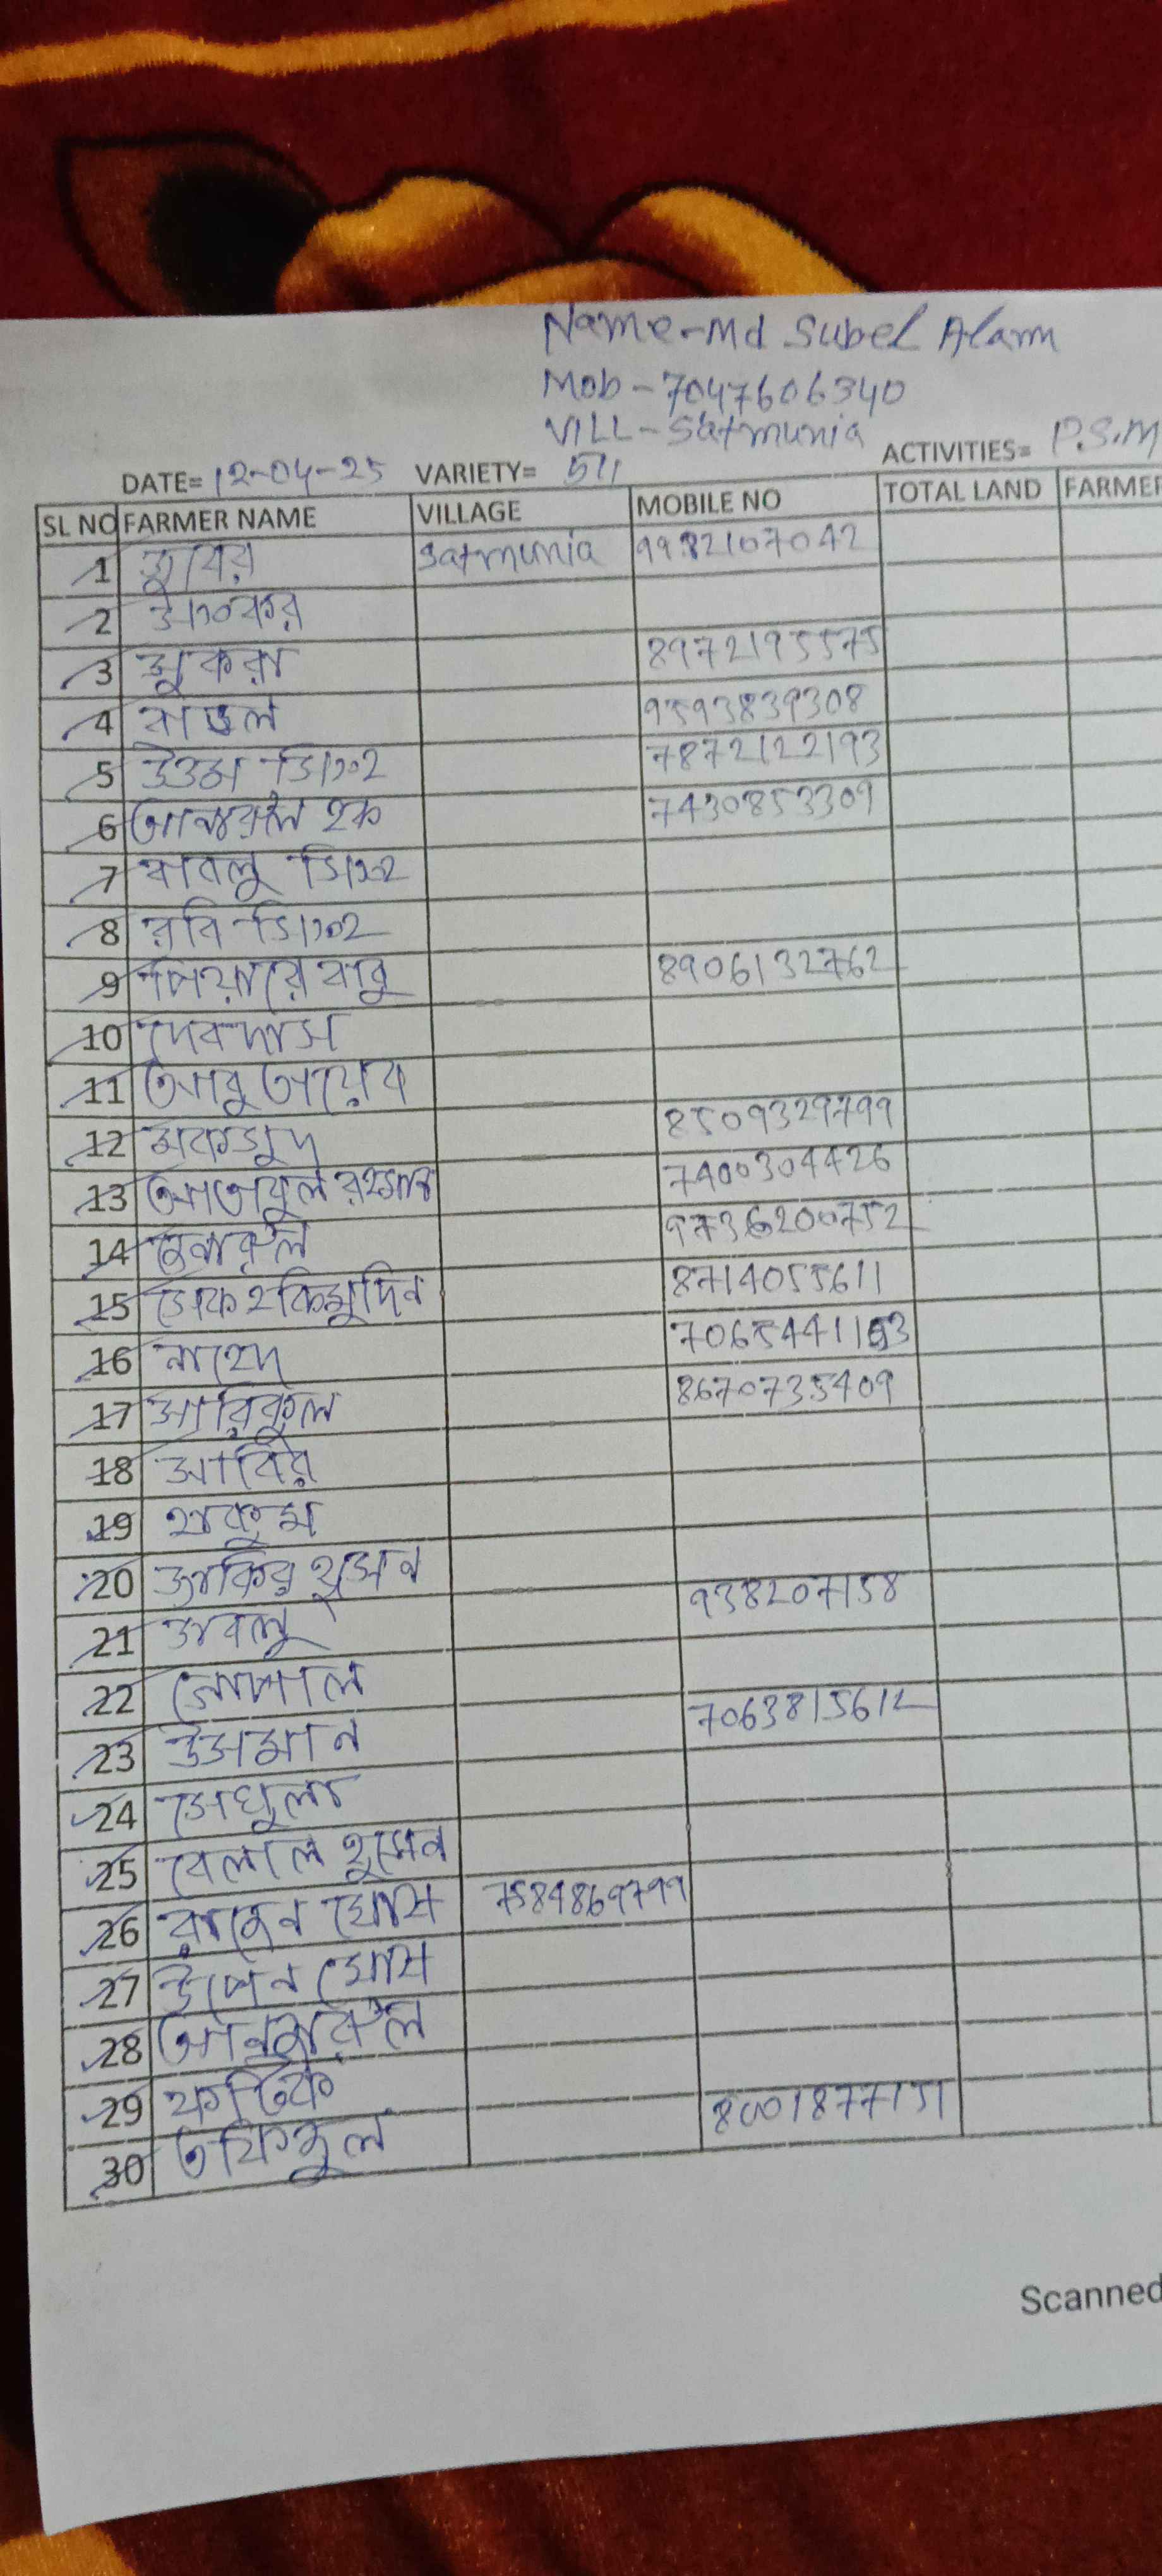 Name-Md Subel Alam
Mob-7047606340
VILL-Satmunia
DATE=12-04-25 VARIETY= 511 ACTIVITIES= P.S.M
SL NO FARMER NAME VILLAGE MOBILE NO TOTAL LAND FARMER
1 জুবের Satmunia 9932107042
2
3 শুকরা 8972195575
4 বাডল 9593839308
5 উত্তম সিংহ 7872122193
6 আনারুল হক 7430853309
7 বাবলু সিংহ
8 রবি সিংহ
9 পিয়ারে বাবু 8906132762
10 দেবদাস
11 আবু তায়েব
12 মকসুদ 8509329799
13 আতাবুল রহমান 7400304426
14 9736200752
15 সেক হকিমুদিন 8714055611
16 নাহেদ
17 আরিকুল 8670735409
18 সাবির
19
20 জাকির হুসেন
21 বাবলু 938207158
22 গোপাল
23 উসমান 7063815612
24
25 বেলাল হুসেন
26 রাজেন ঘোষ 7584869799
27 উপেন ঘোষ
28 আনারুল
29 কার্তিক
30 তফিজুল 8001877151
Scanned